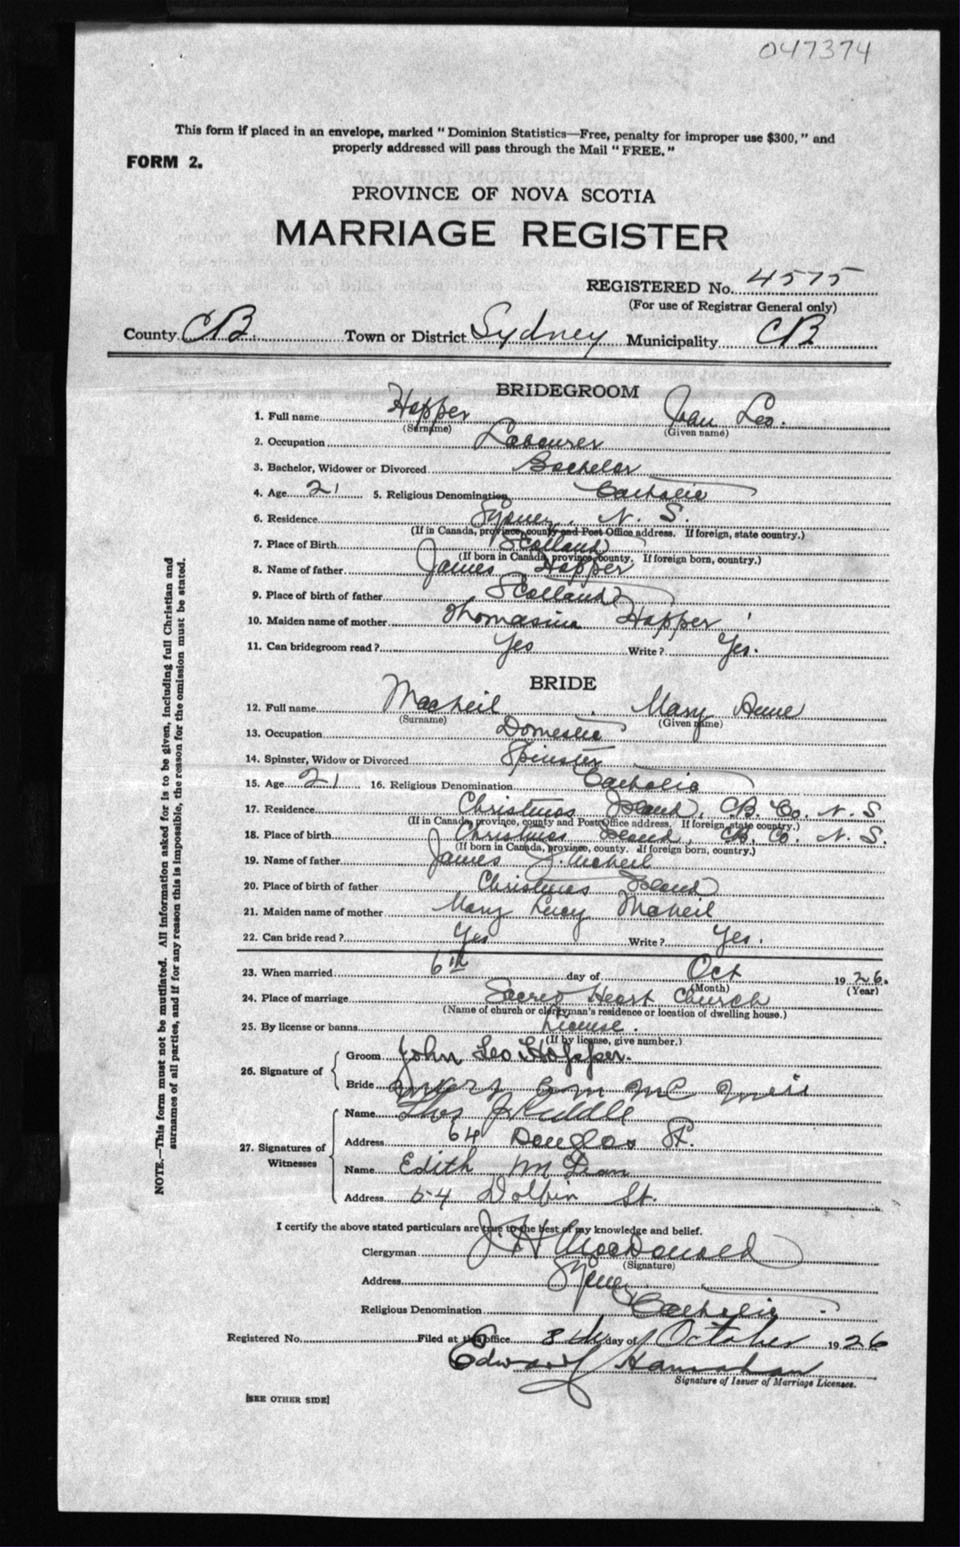 047374
This form if placed in an envelope, marked "Dominion Statistics—Free, penalty for improper use $300," and
properly addressed will pass through the Mail "FREE."
FORM 2.
PROVINCE OF NOVA SCOTIA
MARRIAGE REGISTER
REGISTERED No. 4575
(For use of Registrar General only)
County CB Town or District Sydney Municipality CB
BRIDEGROOM
1. Full name Hopper Leo.
(Surname) (Given name)
2. Occupation Labourer
3. Bachelor, Widower or Divorced Bachelor
4. Age 21 5. Religious Denomination Catholic
6. Residence Sydney, N. S.
(If in Canada, province, county and Post Office address. If foreign, state country.)
7. Place of Birth Scotland
(If born in Canada, province, county. If foreign born, country.)
8. Name of father James Hopper
9. Place of birth of father Scotland
10. Maiden name of mother Thomasina Hopper
11. Can bridegroom read? Yes Write? Yes.
BRIDE
12. Full name MacNeil, Mary Anne
(Surname) (Given name)
13. Occupation Domestic
14. Spinster, Widow or Divorced Spinster
15. Age 21 16. Religious Denomination Catholic
17. Residence Christmas Island, CB. Co. N. S
(If in Canada, province, county and Post Office address. If foreign, state country.)
18. Place of birth Christmas Island, CB. Co. N. S.
(If born in Canada, province, county. If foreign born, country.)
19. Name of father James J. McNeil
20. Place of birth of father Christmas Island
21. Maiden name of mother Mary Lucy McNeil
22. Can bride read? Yes Write? Yes.
23. When married 6th day of Oct 1926.
(Month) (Year)
24. Place of marriage Sacred Heart Church
(Name of church or clergyman's residence or location of dwelling house.)
25. By license or banns License.
(If by license, give number.)
26. Signature of
Groom John Leo Hopper.
Bride Mc Neil
27. Signatures of Witnesses
Name Thos J Ruddle
Address 64 Douglas St.
Name Edith
Address 54 Dolbin St.
I certify the above stated particulars are true to the best of my knowledge and belief.
Clergyman J H MacDonald
(Signature)
Address Sydney
Religious Denomination Catholic
Registered No. Filed at this office 8th day of October 1926
Edward Hanrahan
Signature of Issuer of Marriage Licenses.
[SEE OTHER SIDE]
NOTE.—This form must not be mutilated. All information asked for is to be given, including full Christian and
surnames of all parties, and if for any reason this is impossible, the reason for the omission must be stated.